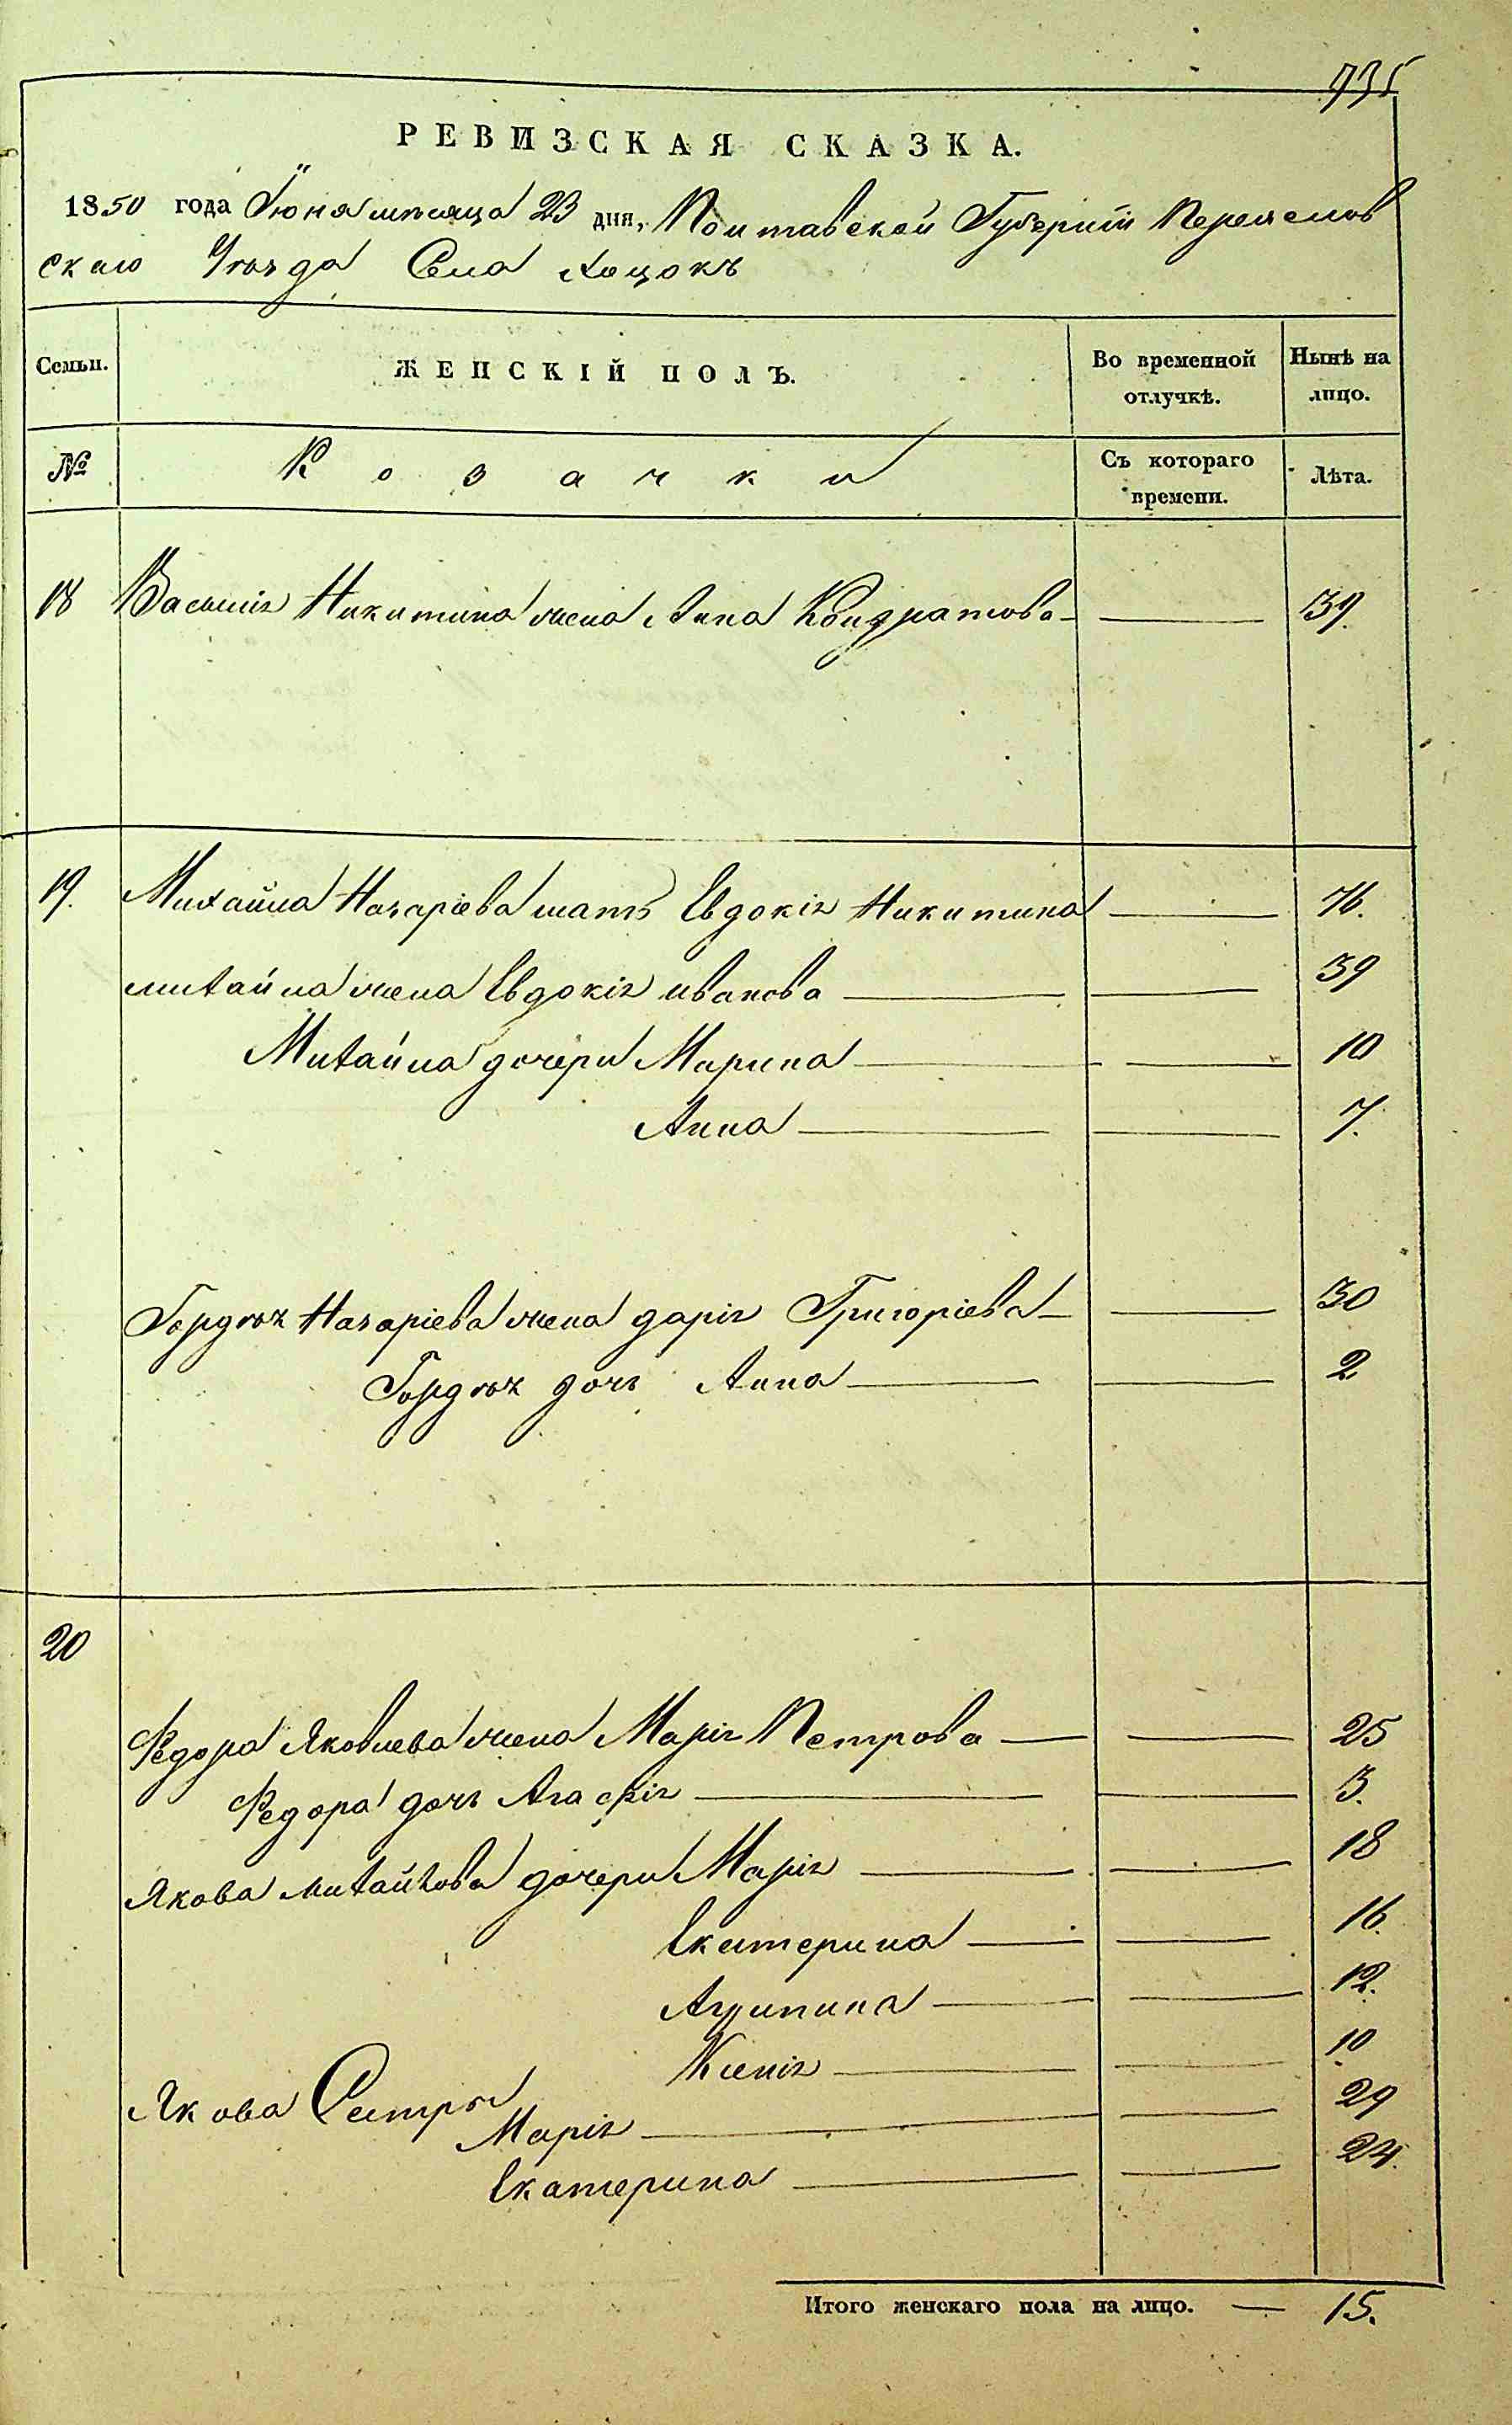 735
РЕВИЗСКАЯ СКАЗКА.
1850 года Іюня мѣсяца 23 дня, Полтавской Губерніи Переяслов
скаго Уѣзда Села Хоцокъ
Семьи. ЖЕНСКІЙ ПОЛЪ. Во временной отлучкѣ. Нынѣ на лицо.
№ Козачки Съ котораго времени. Лѣта.
18 Василія Никитина жена Анна Кондратова — 39.
19. Михайла Назаріева мать Евдокія Никитина — 76.
михайла жена Евдокія иванова — 39
Михайла дочери Марина — 10
Анна — 7.
Гордѣя Назаріева жена дарія Григоріева — 30
Гордѣя дочь Анна — 2
20
Федора Яковлева жена Марія Петрова — 25
Федора дочь Агафія — 3.
Якова михайлова дочери Марія — 18
Екатерина — 16.
Агрипина — 12.
Ксенія — 10
Якова Сестры
Марія — 29
Екатерина — 24.
Итого женскаго пола на лицо. — 15.